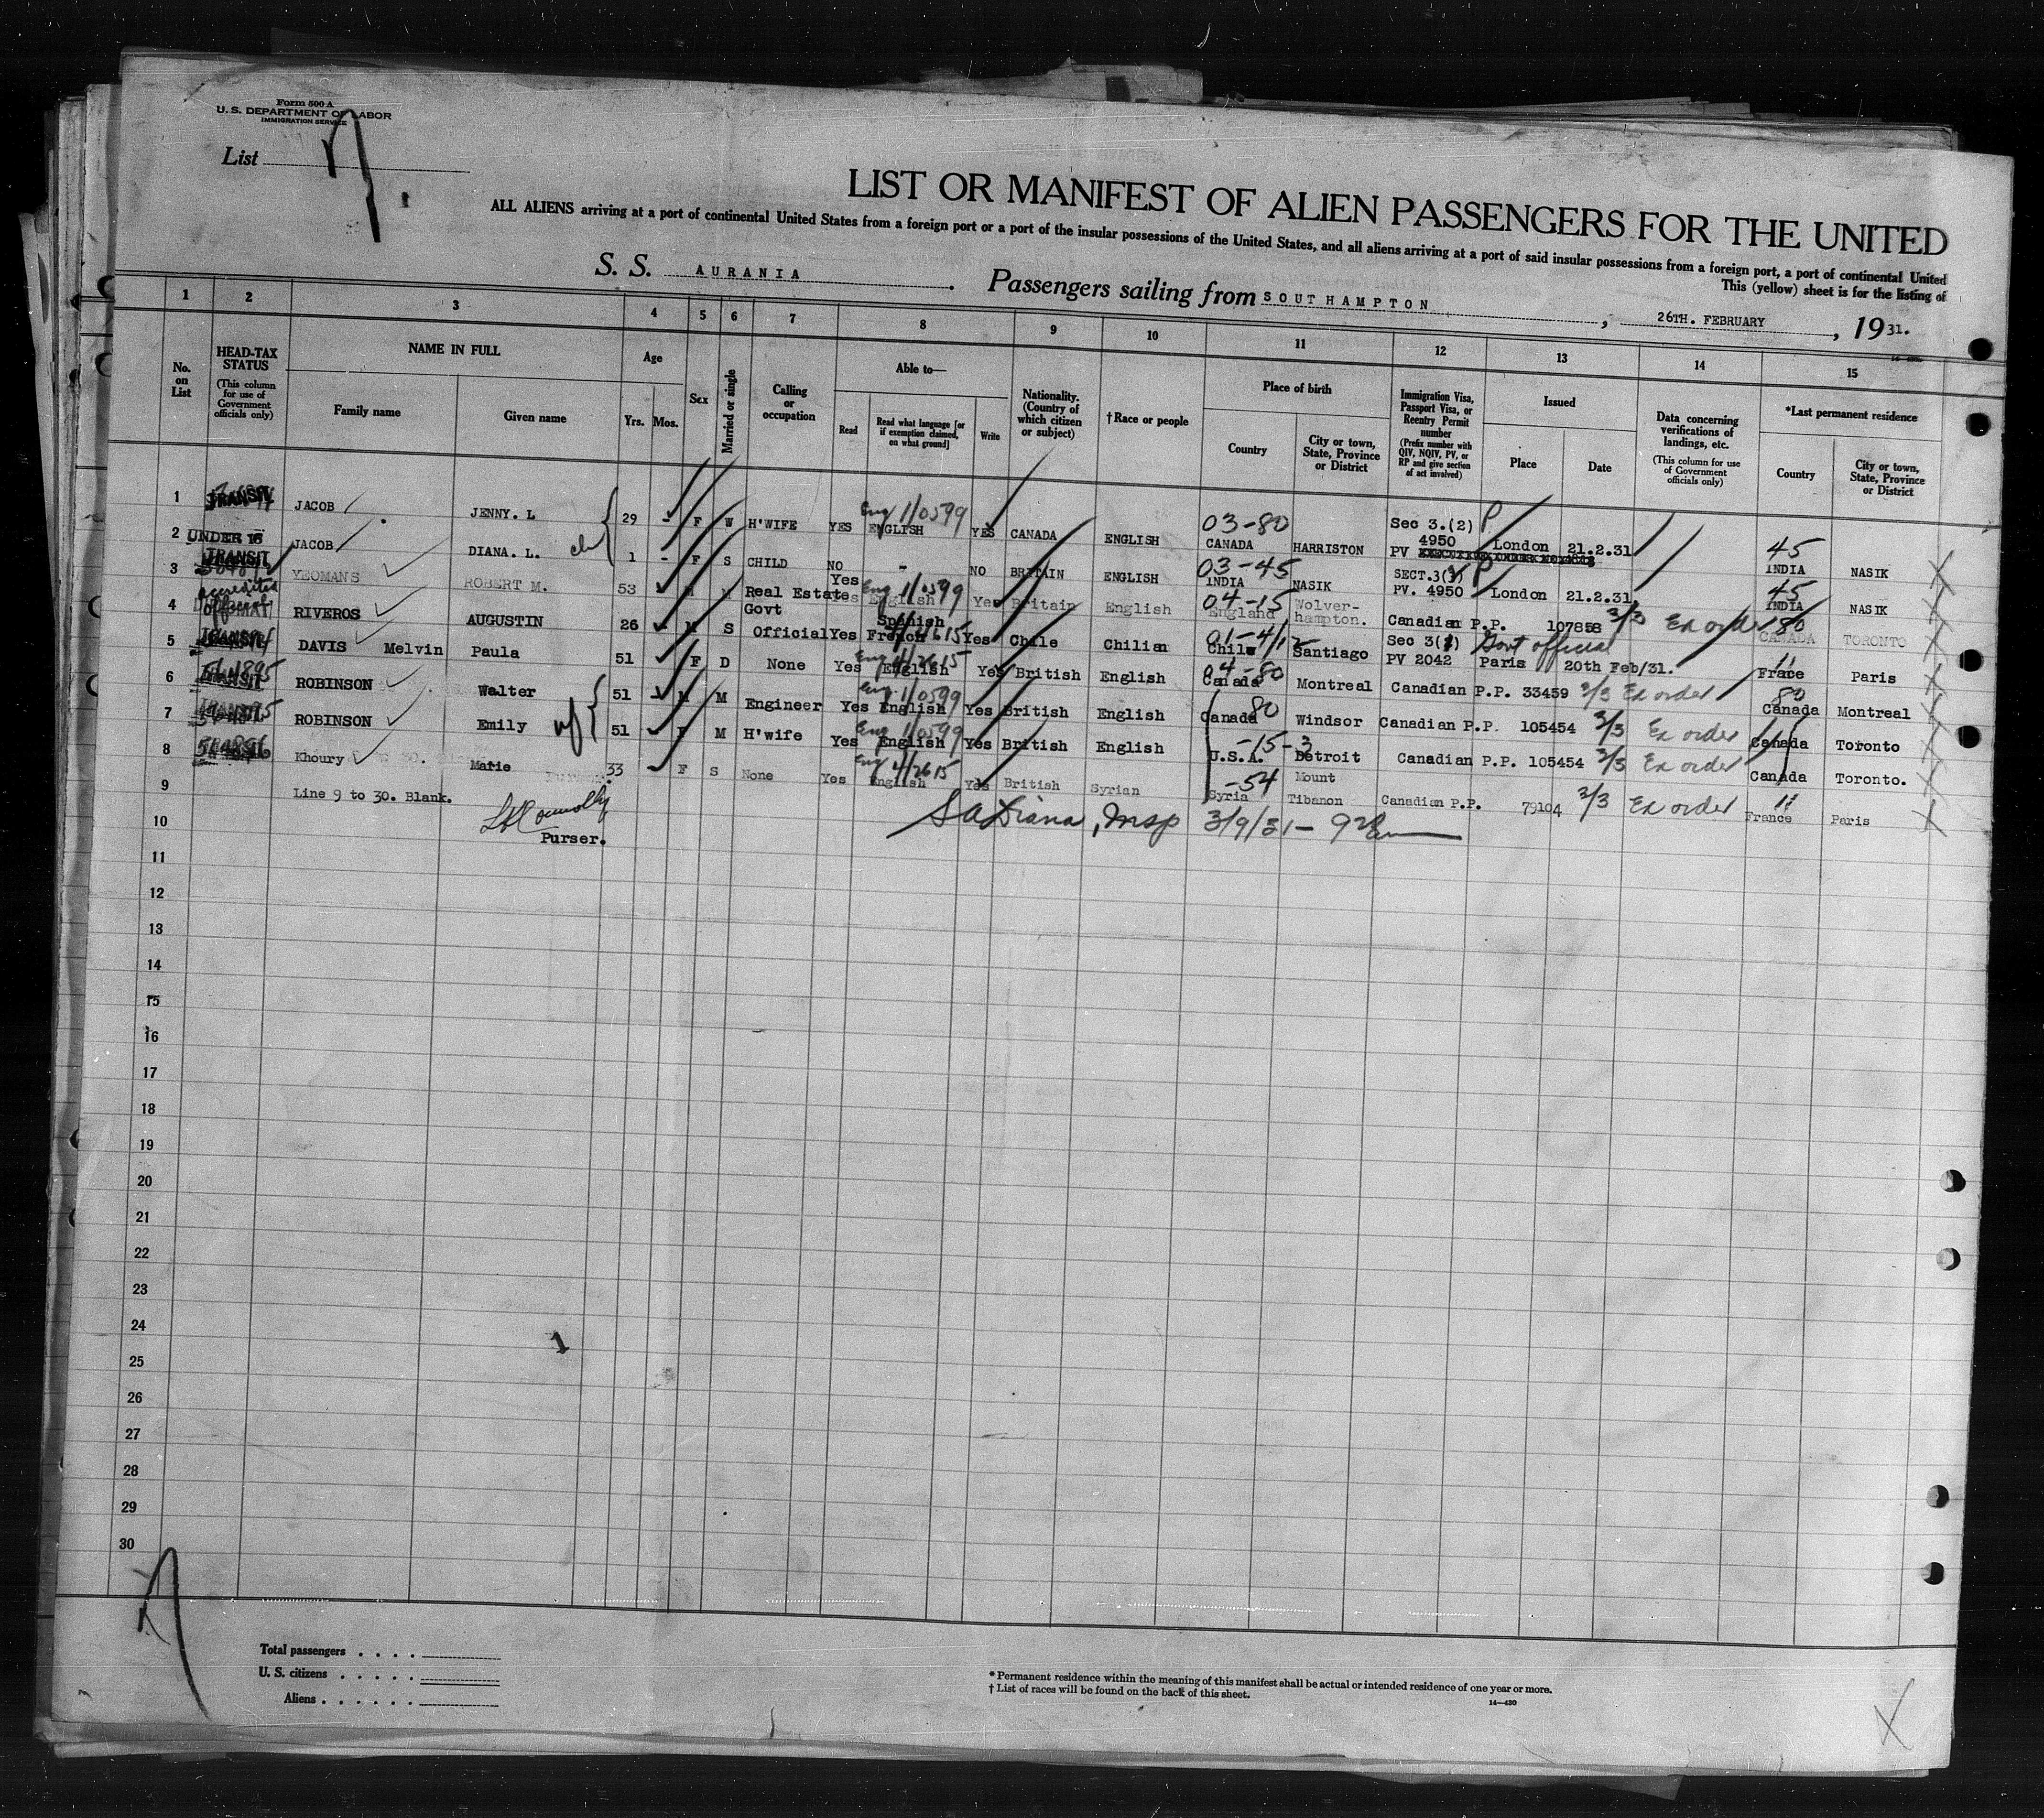 Form 500 A
U. S. DEPARTMENT OF LABOR
IMMIGRATION SERVICE
List 7.
LIST OR MANIFEST OF ALIEN PASSENGERS FOR THE UNITED
ALL ALIENS arriving at a port of continental United States from a foreign port or a port of the insular possessions of the United States, and all aliens arriving at a port of said insular possessions from a foreign port, a port of continental United
This (yellow) sheet is for the listing of
S. S. AURANIA. Passengers sailing from SOUTHAMPTON, 26TH. FEBRUARY, 1931.
1 2 3 4 5 6 7 8 9 10 11 12 13 14 15
No. on List
HEAD-TAX STATUS (This column for use of Government officials only)
NAME IN FULL
Family name Given name
Age
Yrs. Mos.
Sex
Married or single
Calling or occupation
Able to—
Read Read what language [or if exemption claimed, on what ground] Write
Nationality. (Country of which citizen or subject)
† Race or people
Place of birth
Country City or town, State, Province or District
Immigration Visa, Passport Visa, or Reentry Permit number (Prefix number with QIV, NQIV, PV, or RP and give section of act involved)
Issued
Place Date
Data concerning verifications of landings, etc. (This column for use of Government officials only)
*Last permanent residence
Country City or town, State, Province or District
1 TRANSIT JACOB JENNY. L 29 - F W H'WIFE YES Eng 1/0599 ENGLISH YES CANADA ENGLISH 03-80 CANADA HARRISTON Sec 3.(2) P 4950 PV London 21.2.31 45 INDIA NASIK
2 UNDER 16 TRANSIT JACOB DIANA. L. ch 1 - F S CHILD NO - NO BRITAIN ENGLISH 03-45 INDIA NASIK SECT.3( ) P PV. 4950 London 21.2.31 45 INDIA NASIK
3 YEOMANS ROBERT M. 53 Real Estate Yes Eng 1/0599 English Yes Britain English 04-15 England Wolver-hampton. Canadian P.P. 107858 3/3 Ex order 80 CANADA TORONTO
4 accredited official RIVEROS AUGUSTIN 26 M S Govt Official Yes Spanish French Yes Chile Chilian 01-4/12 Chile Santiago Sec 3(1) PV 2042 Govt official Paris 20th Feb/31. 11 France Paris
5 TRANSIT DAVIS Melvin Paula 51 F D None Yes Eng English Yes British English 04-80 Canada Montreal Canadian P.P. 33459 3/3 Ex order 80 Canada Montreal
6 TRANSIT ROBINSON Walter 51 M M Engineer Yes Eng 1/0599 English Yes British English 80 Canada Windsor Canadian P.P. 105454 3/3 Ex order Canada Toronto
7 TRANSIT ROBINSON Emily wf 51 F M H'wife Yes Eng 1/0599 English Yes British English -15-3 U.S.A. Detroit Canadian P.P. 105454 3/3 Ex order Canada Toronto.
8 Khoury Marie 33 F S None Yes Eng 4/2615 English Yes British Syrian -54 Syria Mount Tibanon Canadian P.P. 79104 3/3 Ex order 11 France Paris
9 Line 9 to 30. Blank.
10 Purser. 3/9/31-
11
12
13
14
15
16
17
18
19
20
21
22
23
24
25
26
27
28
29
30
7
Total passengers . . . .
U. S. citizens . . . . .
Aliens . . . . . .
* Permanent residence within the meaning of this manifest shall be actual or intended residence of one year or more.
† List of races will be found on the back of this sheet.
14—430